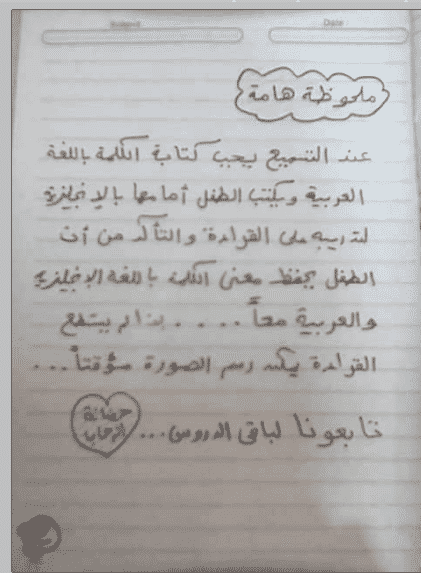 Subject
Date
ملحوظة هامة
عند التسميع يجب كتابة الكلمة باللغة
العربية ويكتب الطفل أمامها بالإنجليزية
لتدريبه على القراءة والتأكد من أن
الطفل يحفظ معنى الكلمة باللغة الإنجليزية
والعربية معاً .... إذا لم يستطع
القراءة يمكنه رسم الصورة مؤقتاً...
تابعونا لباقى الدروس...
حضانة
الرحاب